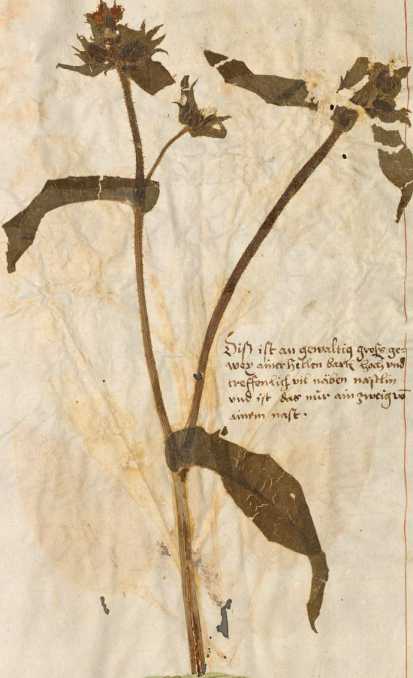 Diß ist an gewaltig groß ge-
wex ainer hellen barth hoch vnd
treffenlich vil näben nästlin
vnd ist das nur ain zweig vō
ainem nast.